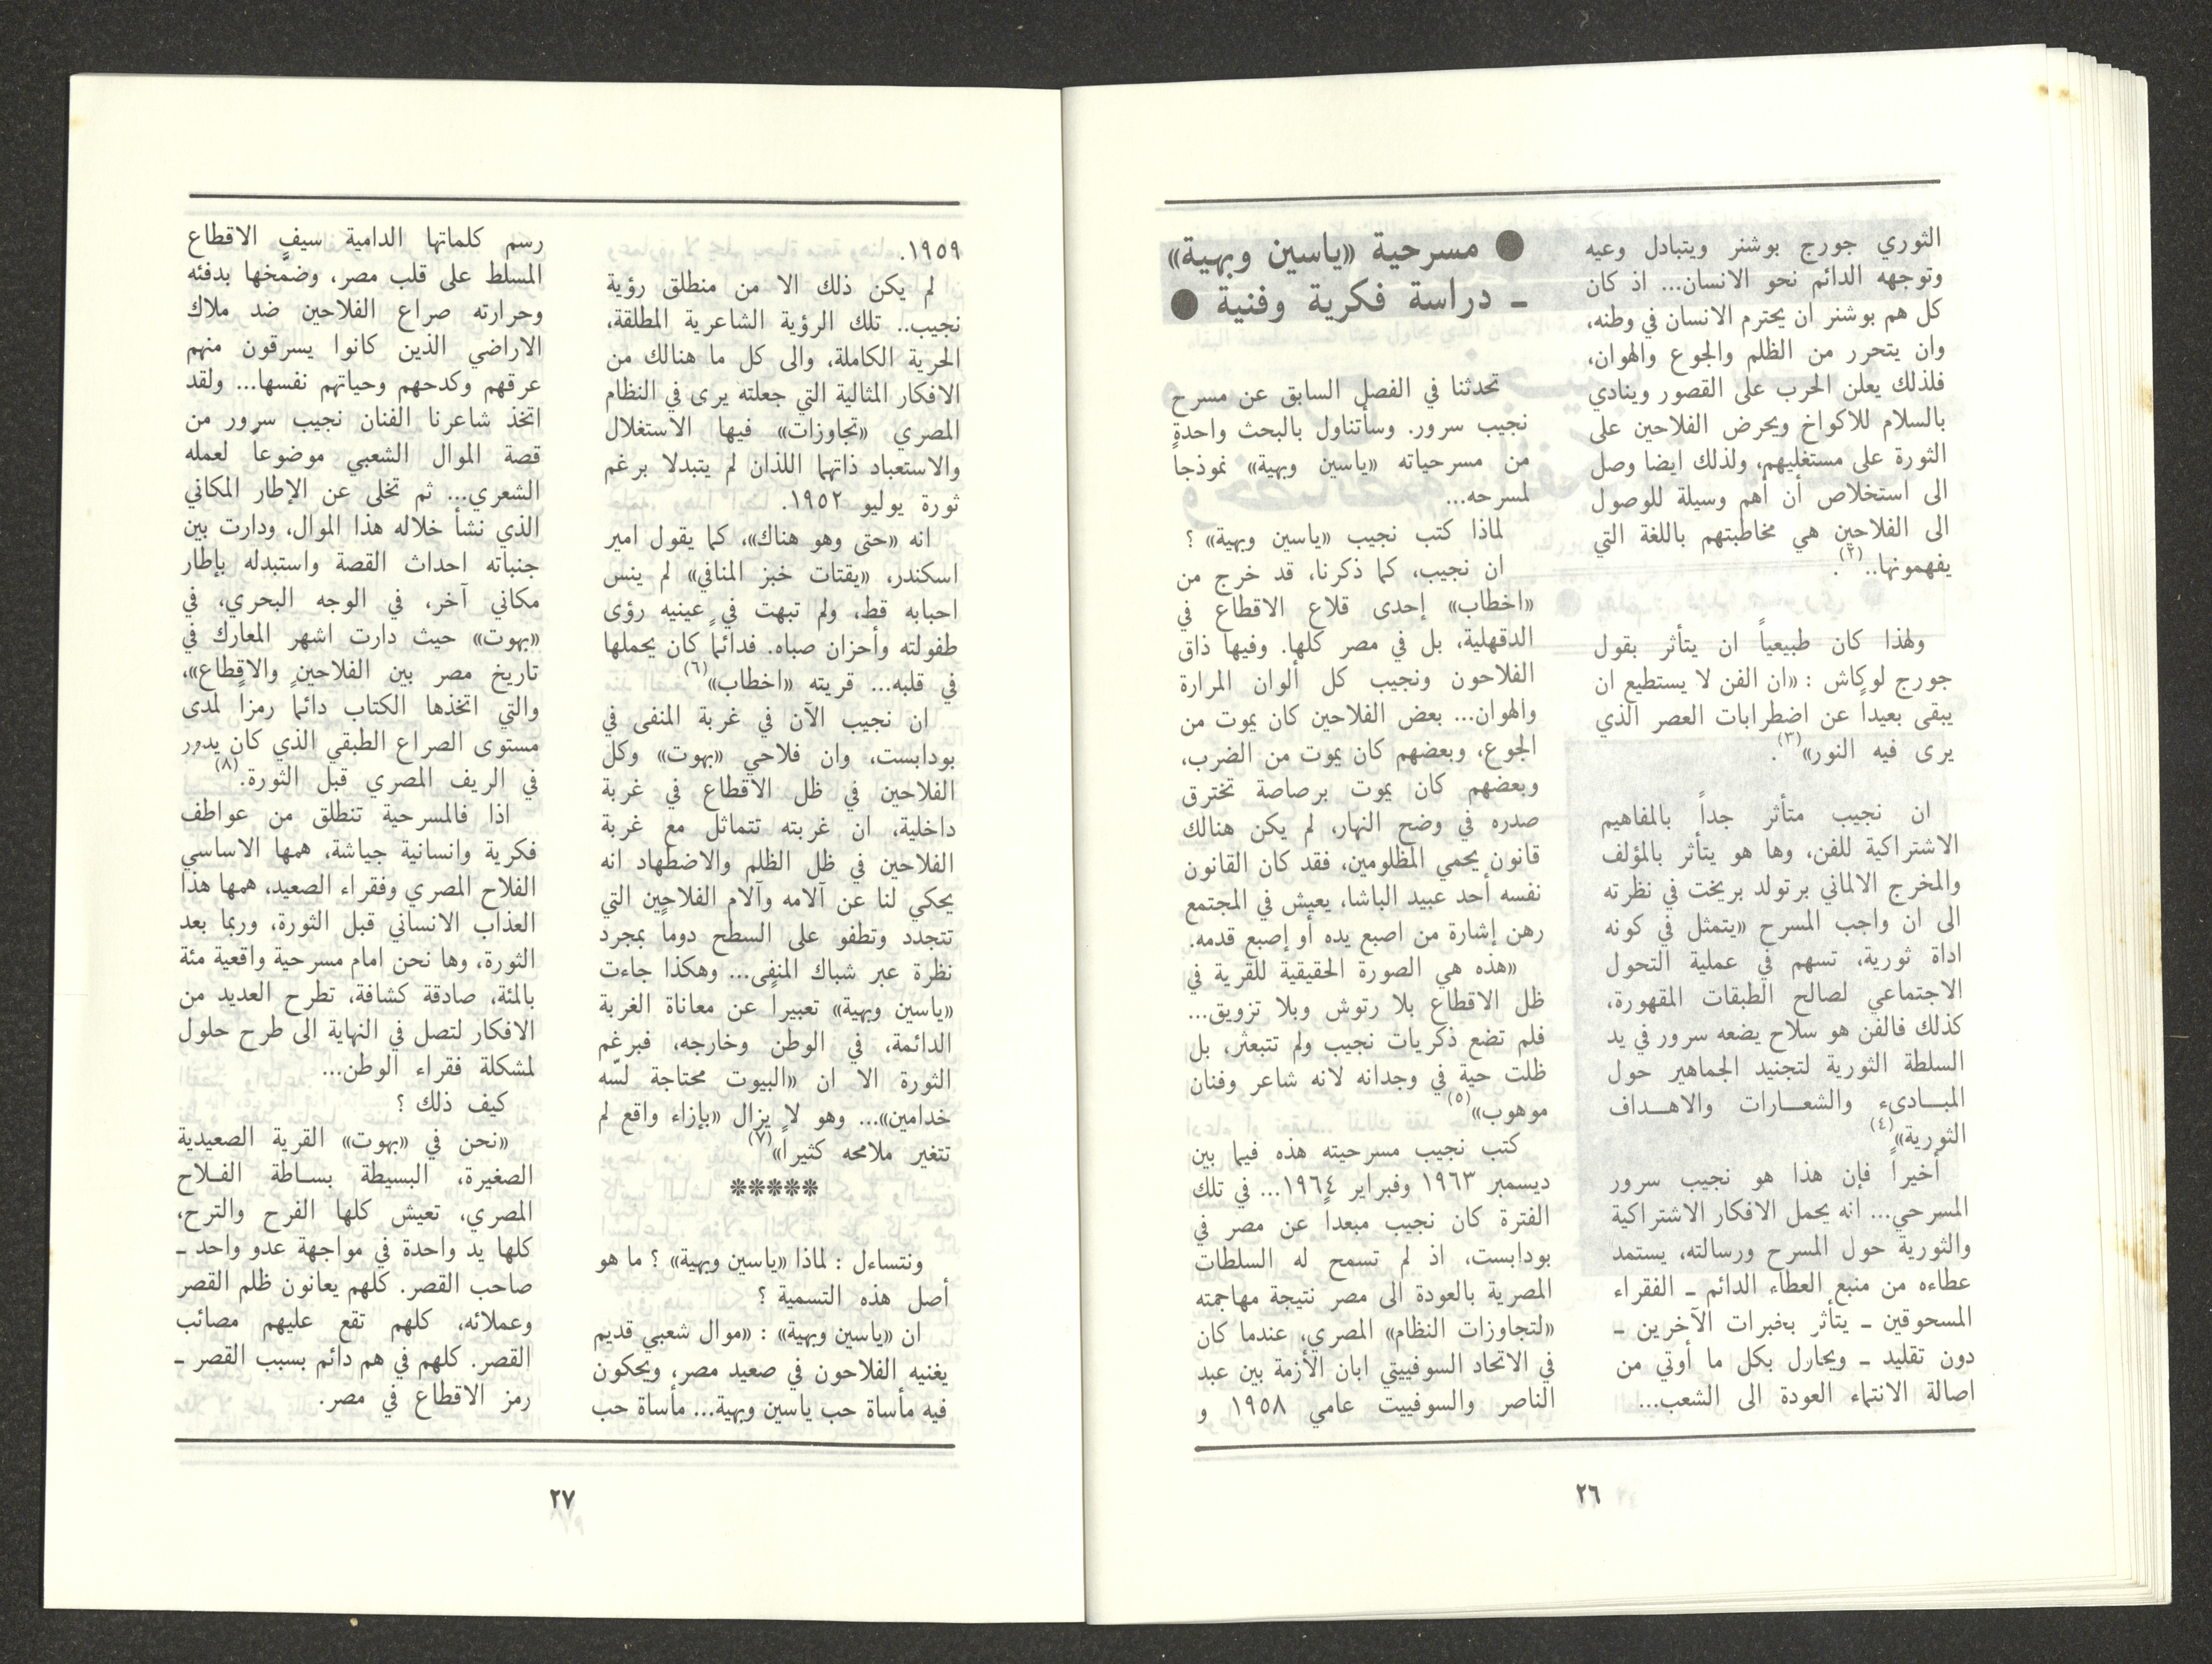 الثوري جورج بوشنر ويتبادل وعيه
وتوجهه الدائم نحو الانسان... اذ كان
كل هم بوشنر ان يحترم الانسان في وطنه،
وان يتحرر من الظلم والجوع والهوان،
فلذلك يعلن الحرب على القصور وينادي
بالسلام للاكواخ ويحرض الفلاحين على
الثورة على مستغليهم، ولذلك ايضا وصل
الى استخلاص أن أهم وسيلة للوصول
الى الفلاحين هي مخاطبتهم باللغة التي
يفهمونها..(٢).
ولهذا كان طبيعياً ان يتأثر بقول
جورج لوكاش : «ان الفن لا يستطيع ان
يبقى بعيداً عن اضطرابات العصر الذي
يرى فيه النور»(٣).
ان نجيب متأثر جداً بالمفاهيم
الاشتراكية للفن، وها هو يتأثر بالمؤلف
والمخرج الالماني برتولد بريخت في نظرته
الى ان واجب المسرح «يتمثل في كونه
اداة ثورية، تسهم في عملية التحول
الاجتماعي لصالح الطبقات المقهورة،
كذلك فالفن هو سلاح يضعه سرور في يد
السلطة الثورية لتجنيد الجماهير حول
المبادىء والشعارات والاهداف
الثورية»(٤)
أخيراً فإن هذا هو نجيب سرور
المسرحي... انه يحمل الافكار الاشتراكية
والثورية حول المسرح ورسالته، يستمد
عطاءه من منبع العطاء الدائم ـ الفقراء
المسحوقين ـ يتأثر بخبرات الآخرين ـ
دون تقليد ـ ويحارل بكل ما أوتي من
اصالة الانتماء العودة الى الشعب...
● مسرحية «ياسين وبهية»
ـ دراسة فكرية وفنية ●
تحدثنا في الفصل السابق عن مسرح
نجيب سرور. وسأتناول بالبحث واحدةٍ
من مسرحياته «ياسين وبهية» نموذجاً
لمسرحه...
لماذا كتب نجيب «ياسين وبهية» ؟
ان نجيب، كما ذكرنا، قد خرج من
«اخطاب» إحدى قلاع الاقطاع في
الدقهلية، بل في مصر كلها. وفيها ذاق
الفلاحون ونجيب كل ألوان المرارة
والهوان... بعض الفلاحين كان يموت من
الجوع، وبعضهم كان يموت من الضرب،
وبعضهم كان يموت برصاصة تخترق
صدره في وضح النهار، لم يكن هنالك
قانون يحمي المظلومين، فقد كان القانون
نفسه أحد عبيد الباشا، يعيش في المجتمع
رهن إشارة من اصبع يده أو إصبع قدمه.
«هذه هي الصورة الحقيقية للقرية في
ظل الاقطاع بلا رتوش وبلا تزويق...
فلم تضع ذكريات نجيب ولم تتبعثر، بل
ظلت حية في وجدانه لانه شاعر وفنان
موهوب»(٥)
كتب نجيب مسرحيته هذه فيما بين
ديسمبر ١٩٦٣ وفبراير ١٩٦٤... في تلك
الفترة كان نجيب مبعداً عن مصر في
بودابست، اذ لم تسمح له السلطات
المصرية بالعودة الى مصر نتيجة مهاجمته
«لتجاوزات النظام» المصري، عندما كان
في الاتحاد السوفييتي ابان الأزمة بين عبد
الناصر والسوفييت عامي ١٩٥٨ و
٢٦
١٩٥٩.
لم يكن ذلك الا من منطلق رؤية
نجيب.. تلك الرؤية الشاعرية المطلقة،
الحرية الكاملة، والى كل ما هنالك من
الافكار المثالية التي جعلته يرى في النظام
المصري «تجاوزات» فيها الاستغلال
والاستعباد ذاتهما اللذان لم يتبدلا برغم
ثورة يوليو ١٩٥٢.
انه «حتى وهو هناك»، كما يقول امير
اسكندر، «يقتات خبز المنافي» لم ينس
احبابه قط، ولم تبهت في عينيه رؤى
طفولته وأحزان صباه. فدائماً كان يحملها
في قلبه... قريته «اخطاب»(٦)
ان نجيب الآن في غربة المنفى في
بودابست، وان فلاحي «بهوت» وكل
الفلاحين في ظل الاقطاع في غربة
داخلية، ان غربته تتماثل مع غربة
الفلاحين في ظل الظلم والاضطهاد انه
يحكي لنا عن آلامه وآلام الفلاحين التي
تتجدد وتطفو على السطح دوماً بمجرد
نظرة عبر شباك المنفى... وهكذا جاءت
«ياسين وبهية» تعبيراً عن معاناة الغربة
الدائمة، في الوطن وخارجه، فبرغم
الثورة الا ان «البيوت محتاجة لسّه
خدامين»... وهو لا يزال «بإزاء واقع لم
تتغير ملامحه كثيراً»(٧)
*****
ونتساءل : لماذا «ياسين وبهية» ؟ ما هو
أصل هذه التسمية ؟
ان «ياسين وبهية» : «موال شعبي قديم
يغنيه الفلاحون في صعيد مصر، ويحكون
فيه مأساة حب ياسين وبهية... مأساة حب
رسم كلماتها الدامية سيف الاقطاع
المسلط على قلب مصر، وضمّخها بدفئه
وحرارته صراع الفلاحين ضد ملاك
الاراضي الذين كانوا يسرقون منهم
عرقهم وكدحهم وحياتهم نفسها... ولقد
اتخذ شاعرنا الفنان نجيب سرور من
قصة الموال الشعبي موضوعاً لعمله
الشعري... ثم تخلى عن الإطار المكاني
الذي نشأ خلاله هذا الموال، ودارت بين
جنباته احداث القصة واستبدله بإطار
مكاني آخر، في الوجه البحري، في
«بهوت» حيث دارت اشهر المعارك في
تاريخ مصر بين الفلاحين والاقطاع»،
والتي اتخذها الكتاب دائماً رمزاً لمدى
مستوى الصراع الطبقي الذي كان يدور
في الريف المصري قبل الثورة.(٨)
اذا فالمسرحية تنطلق من عواطف
فكرية وانسانية جياشة، همها الاساسي
الفلاح المصري وفقراء الصعيد، همها هذا
العذاب الانساني قبل الثورة، وربما بعد
الثورة، وها نحن امام مسرحية واقعية مئة
بالمئة، صادقة كشافة، تطرح العديد من
الافكار لتصل في النهاية الى طرح حلول
لمشكلة فقراء الوطن...
كيف ذلك ؟
«نحن في «بهوت» القرية الصعيدية
الصغيرة، البسيطة بساطة الفلاح
المصري، تعيش كلها الفرح والترح،
كلها يد واحدة في مواجهة عدو واحد ـ
صاحب القصر. كلهم يعانون ظلم القصر
وعملائه، كلهم تقع عليهم مصائب
القصر. كلهم في هم دائم بسبب القصر ـ
رمز الاقطاع في مصر.
٢٧